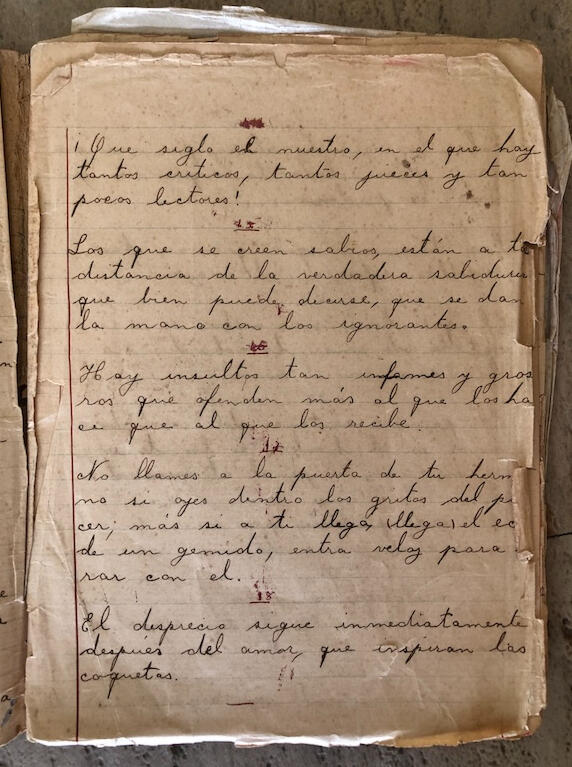 ¡Que siglo el nuestro, en el que hay
tantos criticos, tantos jueces y tan
pocos lectores!
15
Los que se creen sabios, están a ta
distancia de la verdadera sabidur
que bien puede, decirse, que se dan
la mano con los ignorantes.
16
Hay insultos tan infames y gros
ros que ofenden más al que los ha
ce que al que los recibe.
17
No llames a la puerta de tu herm
no si oyes dentro los gritos del p
cer; más si a ti llega, (llega) el ec
de un gemido, entra veloz para
rar con el.
18
El desprecio sigue inmediatamente
después del amor, que inspiran las
coquetas.